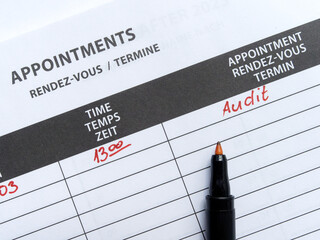 APPOINTMENTS
RENDEZ-VOUS / TERMINE
TIME
TEMPS
ZEIT
APPOINTMENT
RENDEZ-VOUS
TERMIN
03
13⁰⁰
Audit